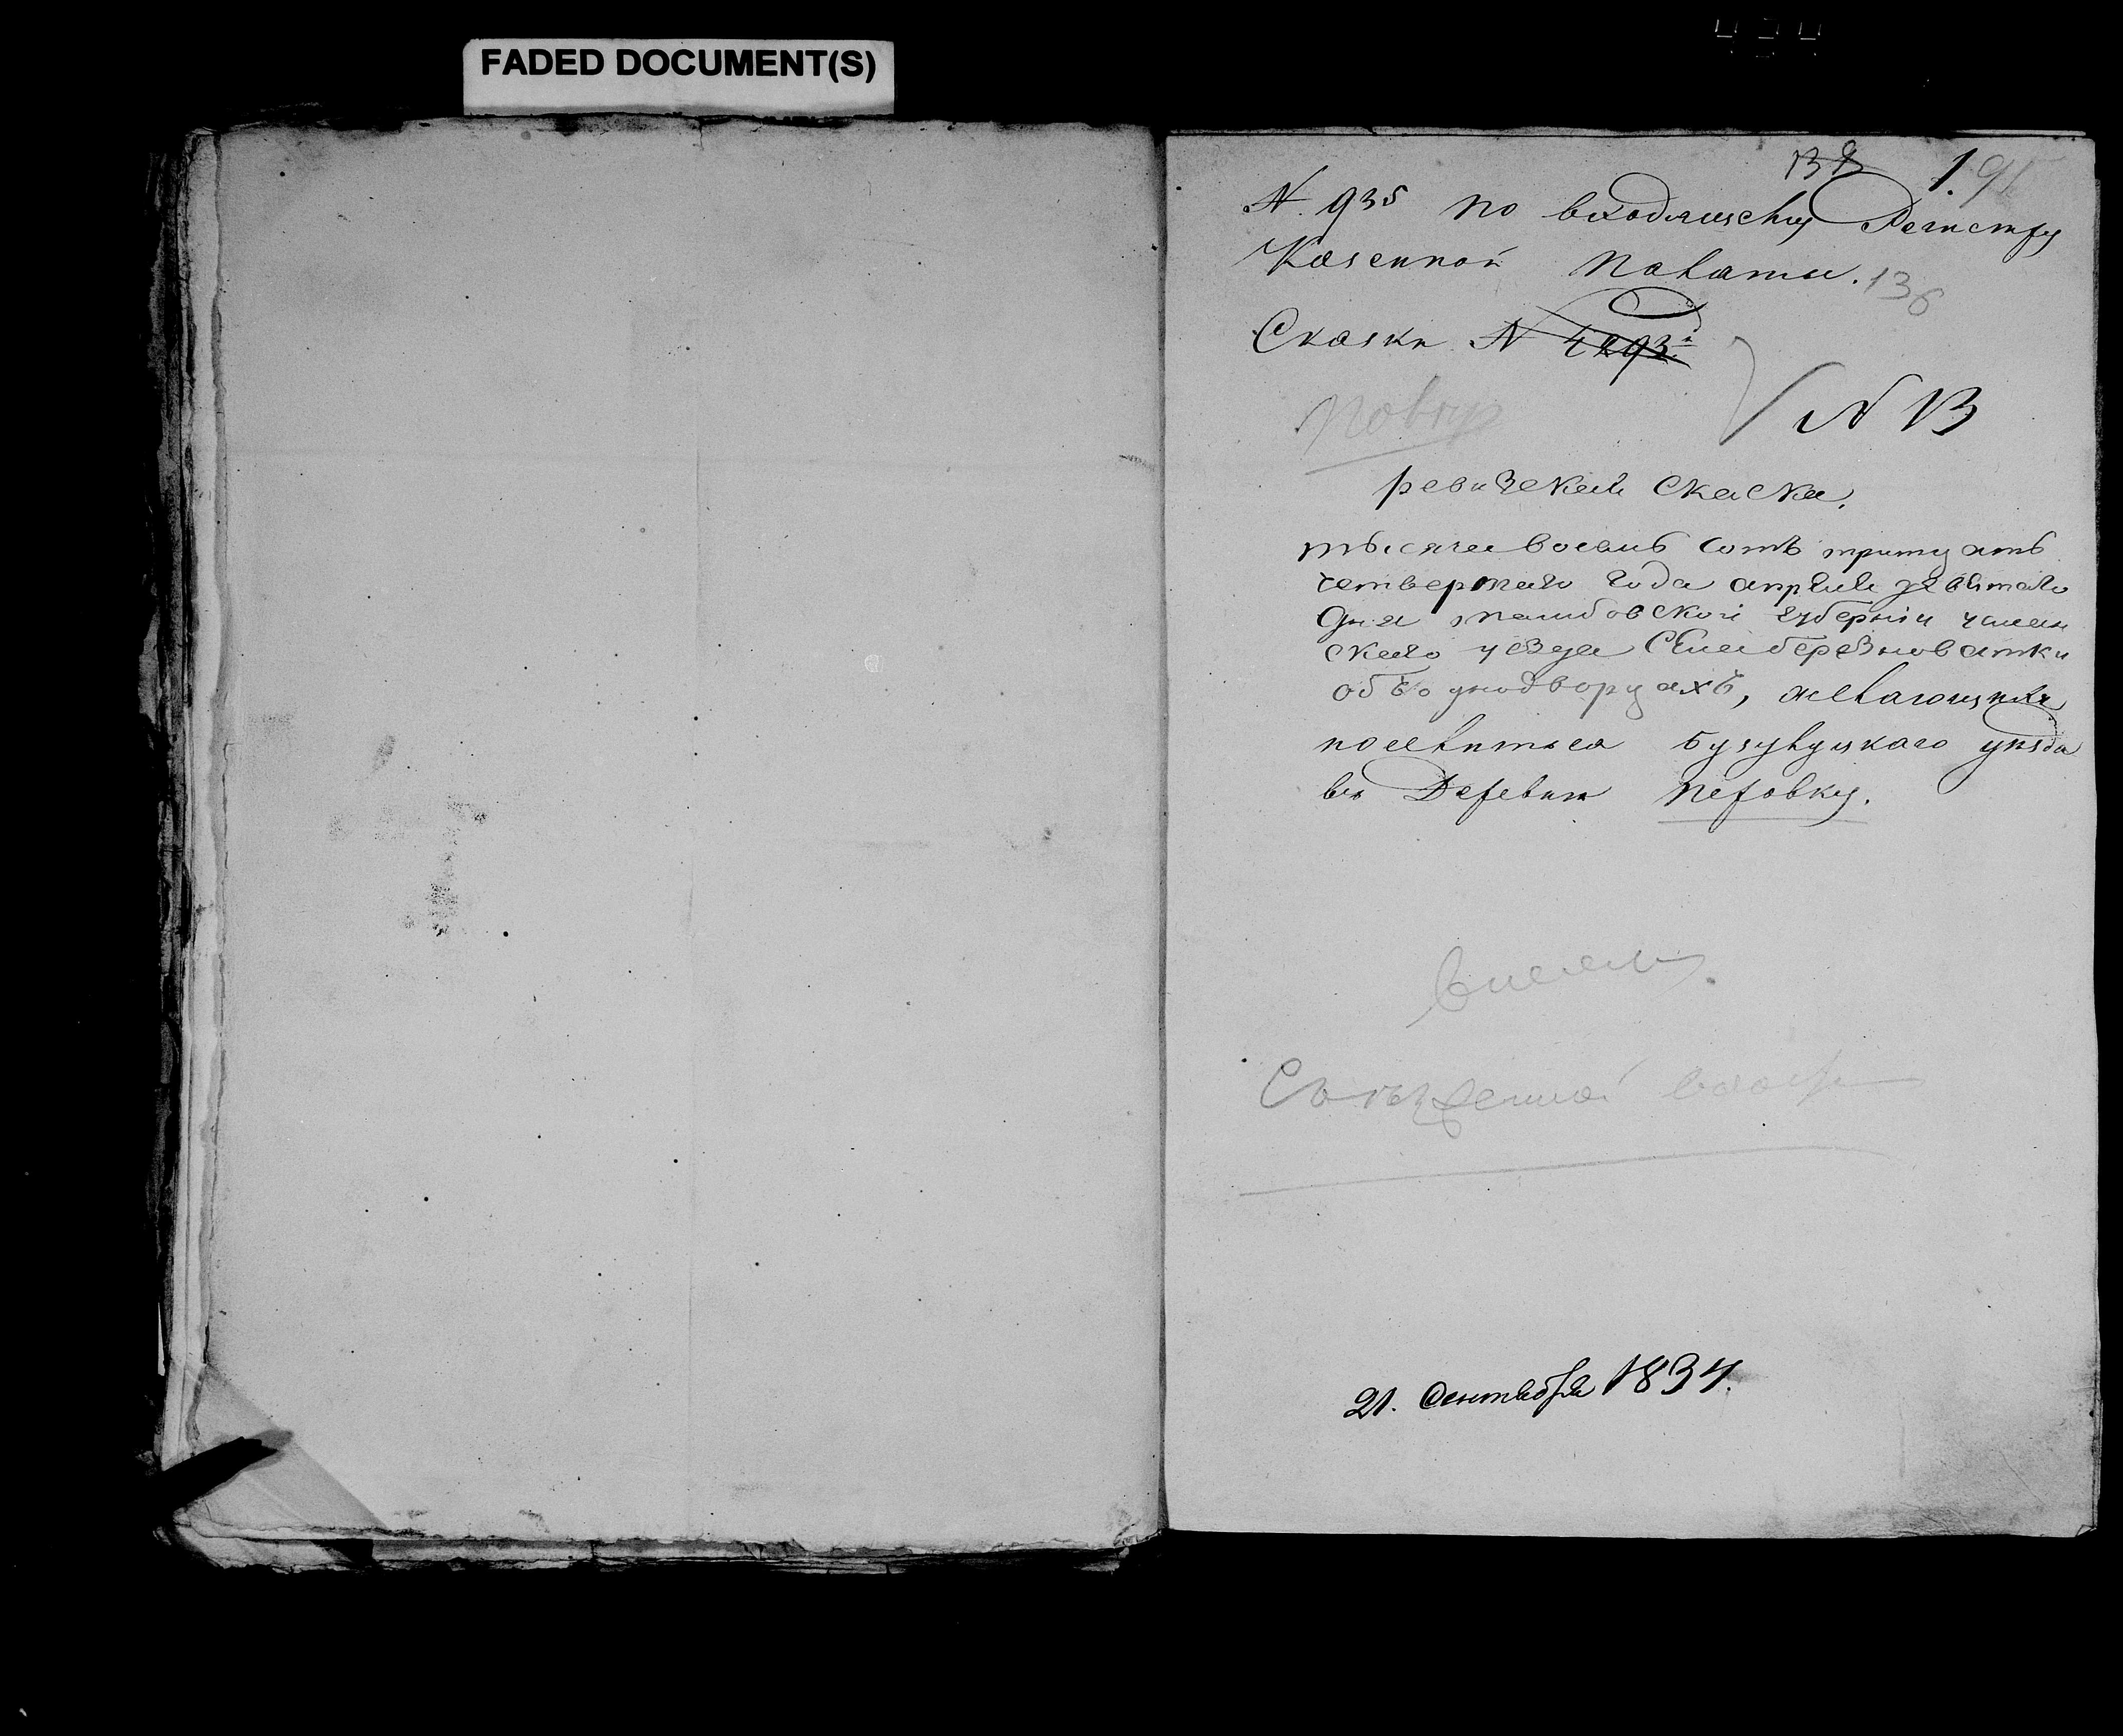 FADED DOCUMENT(S)
1.
N. 935 по входящему Регистру
Казенной Палаты. 136
Сказки N 4293й
N 13
ревизская скаска.
тысяча восемь сотъ тритцать
четвертаго года апреля девятаго
дня тамбовской губернiи усман
скаго уезда Села березноватки
объ однодворцахъ, желающихъ
поселиться Бузулуцкаго уѣзда
въ Деревню Перовку.
21. Сентября 1834.